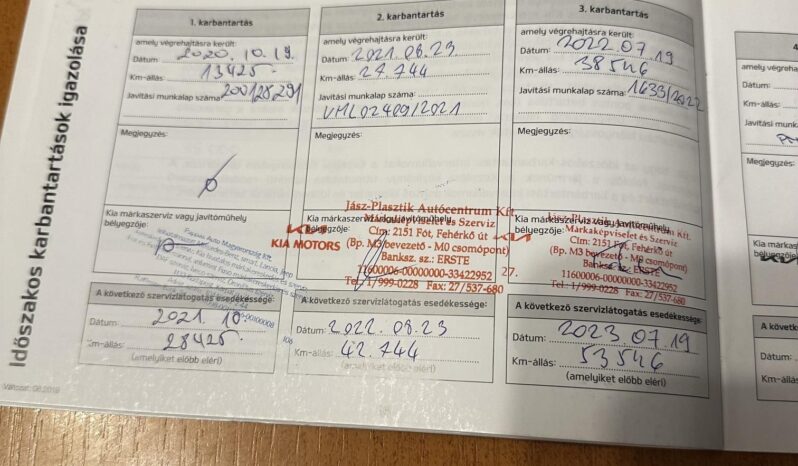 Időszakos karbantartások igazolása
1. karbantartás
amely végrehajtásra került:
Dátum: 2020.10.19.
Km-állás: 13425.
Javítási munkalap száma: 200128291
Megjegyzés:
Kia márkaszerviz vagy javítóműhely
bélyegzője:
A következő szervizlátogatás esedékessége:
Dátum: 2021.10.
Km-állás: 28425.
(amelyiket előbb eléri)
2. karbantartás
amely végrehajtásra került:
Dátum: 2021.08.23
Km-állás: 27744
Javítási munkalap száma:
VML02469/2021
Megjegyzés:
Kia márkaszerviz vagy javítóműhely
bélyegzője:
KIA MOTORS
Jász-Plasztik Autócentrum Kft.
Márkaképviselet és Szerviz
Cím: 2151 Fót, Fehérkő út
(Bp. M3 bevezető - M0 csomópont)
Banksz. sz.: ERSTE
11600006-00000000-33422952 27.
Tel.: 1/999-0228 Fax: 27/537-680
A következő szervizlátogatás esedékessége:
Dátum: 2022.08.23
Km-állás: 42.744
(amelyiket előbb eléri)
3. karbantartás
amely végrehajtásra került:
Dátum: 2022.07.19
Km-állás: 38546
Javítási munkalap száma: 1633/2022
Megjegyzés:
Kia márkaszerviz vagy javítóműhely
bélyegzője:
KIA
Jász-Plasztik Autócentrum Kft.
Márkaképviselet és Szerviz
Cím: 2151 Fót, Fehérkő út
(Bp. M3 bevezető - M0 csomópont)
Banksz. sz.: ERSTE
11600006-00000000-33422952
Tel.: 1/999-0228 Fax: 27/537-680
A következő szervizlátogatás esedékessége:
Dátum: 2023.07.19
Km-állás: 53546
(amelyiket előbb eléri)
4
amely végreha
Dátum:
Km-állás:
Javítási munka
Megjegyzés:
Kia márkasz
bélyegzője:
A követke
Dátum:
Km-állás:
Változat: 08.2019